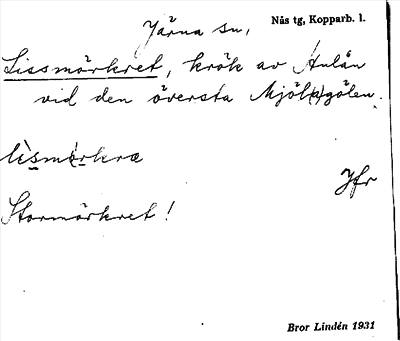 Järna sn,
Nås tg, Kopparb. l.
Lissmörkret, krök av Anlån
vid den översta Mjöl(a)gölen.
lìsmö̀rkra
Jfr
Stormörkret!
Bror Lindén 1931